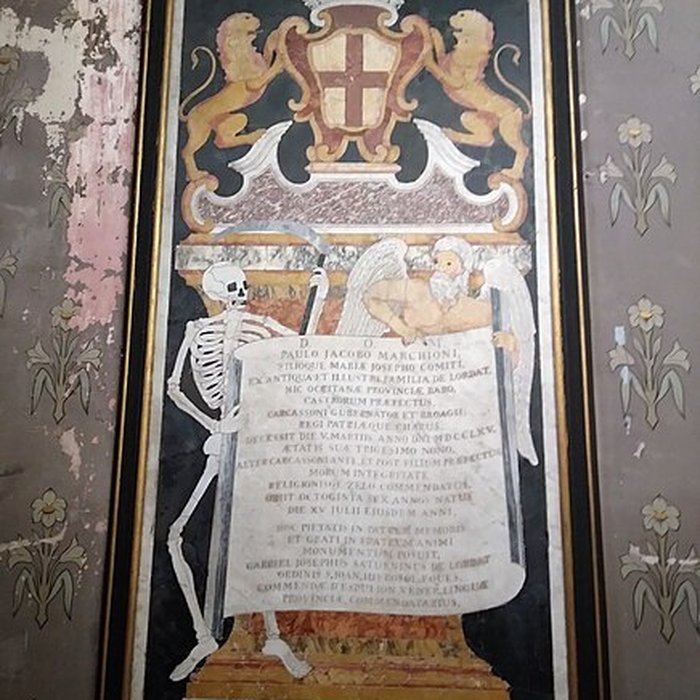 D. O. M.
PAULO JACOBO MARCHIONI,
FILIOQUE MARIÆ JOSEPHO COMITI,
EX ANTIQUA ET ILLUSTRI FAMILIA DE LORDAT,
HIC OCCITANÆ PROVINCIÆ BARO,
CASTRORUM PRÆFECTUS
CARCASSONI GUBERNATOR ET
REGI PATRIÆQUE CHARUS.
DECESSIT DIE V. MARTIIS ANNO DNI MDCCLXV.
ÆTATIS SUÆ TRIGESIMO NONO,
ALTER CARCASSONI ANTE, ET POST FILIUM PRÆFECTUS
MORUM INTEGRITATE
RELIGIONISQUE ZELO COMMENDATUS,
OBIIT OCTOGINTA SEX ANNOS NATUS
DIE XV JULII EJUSDEM ANNI.
HOC PIETATIS IN PATREM MEMORIS
ET GRATI IN FRATREM ANIMI
MONUMENTUM POSUIT,
GABRIEL JOSEPHUS SATURNINUS DE LORDAT
ORDINIS S. JOAN. EQUES.
COMMENDÆ LINGUÆ
PROVINCIÆ COMMENDATARIUS.